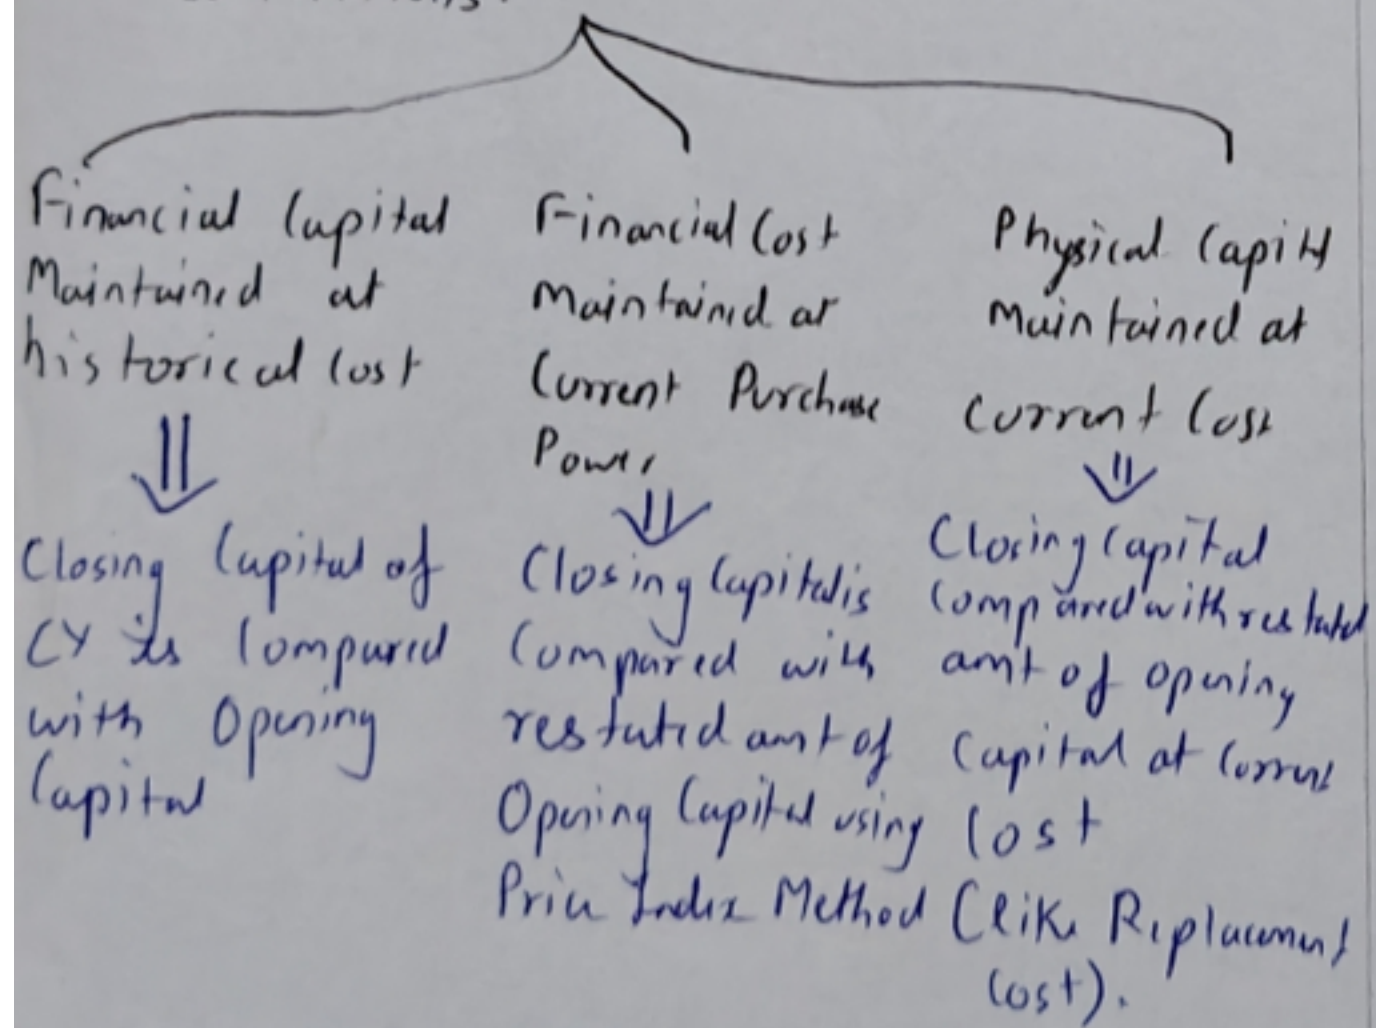 Financial Capital
Maintained at
historical Cost
Closing Capital of
CY is Compared
with Opening
Capital
Financial Cost
Maintained at
Current Purchase
Power
Closing Capital is
Compared with
restated amt of
Opening Capital using
Price Index Method
Physical Capital
Maintained at
Current Cost
Closing Capital
Compared with restated
amt of opening
Capital at Current
Cost
(like Replacement
Cost).